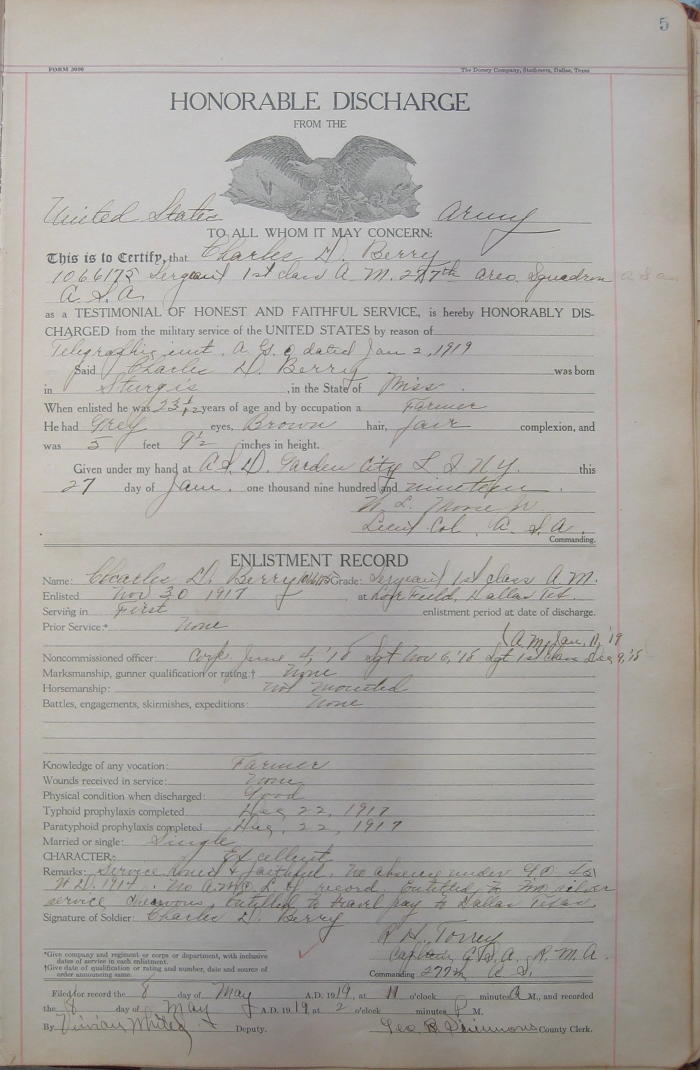 5
FORM 3090 The Dorsey Company, Stationers, Dallas, Texas
HONORABLE DISCHARGE
FROM THE
United States Army
TO ALL WHOM IT MAY CONCERN:
This is to Certify, that Charles D. Berry
1066175 Sergeant 1st class A. M. 277th aero. Squadron
A. S. A.
as a TESTIMONIAL OF HONEST AND FAITHFUL SERVICE, is hereby HONORABLY DIS-
CHARGED from the military service of the UNITED STATES by reason of
Telegraphic inst. A. G. O dated Jan 2, 1919
Said Charles D. Berry was born
in Sturgis, in the State of Miss.
When enlisted he was 23 1/12 years of age and by occupation a Farmer
He had Grey eyes, Brown hair, fair complexion, and
was 5 feet 9½ inches in height.
Given under my hand at A. S. D. Garden City L I N Y. this
27 day of Jan. one thousand nine hundred and nineteen.
W. L. Moore Jr.
Lieut Col. A. S. A.
Commanding.
ENLISTMENT RECORD
Name: Charles D. Berry 1066175 Grade: Sergeant 1st class A. M.
Enlisted Nov 30 1917 at Love Field, Dallas Tex.
Serving in First enlistment period at date of discharge.
Prior Service:* None
(A M) Jan, 11, '19
Noncommissioned officer Corp. June 4, '18 Sgt Nov 6, '18 Sgt 1st class Dec 9, '18
Marksmanship, gunner qualification or rating:† None
Horsemanship: Not mounted
Battles, engagements, skirmishes, expeditions: None
Knowledge of any vocation: Farmer
Wounds received in service: None
Physical condition when discharged: Good
Typhoid prophylaxis completed Dec, 22, 1917
Paratyphoid prophylaxis completed Dec, 22, 1917
Married or single: Single
CHARACTER: Excellent
Remarks: Service honest & faithful. No absence under G. O. 45
W D. 1914. No A.W.O.L of record. Entitled to two silver
service chevrons, Entitled to travel pay to Dallas Texas.
Signature of Soldier: Charles D. Berry
R H. Torrey
Captain, A. R. M. A.
*Give company and regiment or corps or department, with inclusive
dates of service in each enlistment.
†Give date of qualification or rating and number, date and source of
order announcing same.
Commanding 277th A. S.
Filed for record the 8 day of May A.D. 1919, at 11 o'clock minutes A M., and recorded
the 8 day of May A.D. 1919, at 2 o'clock minutes P M.
By Vivian Deputy. Geo R Simmons County Clerk.